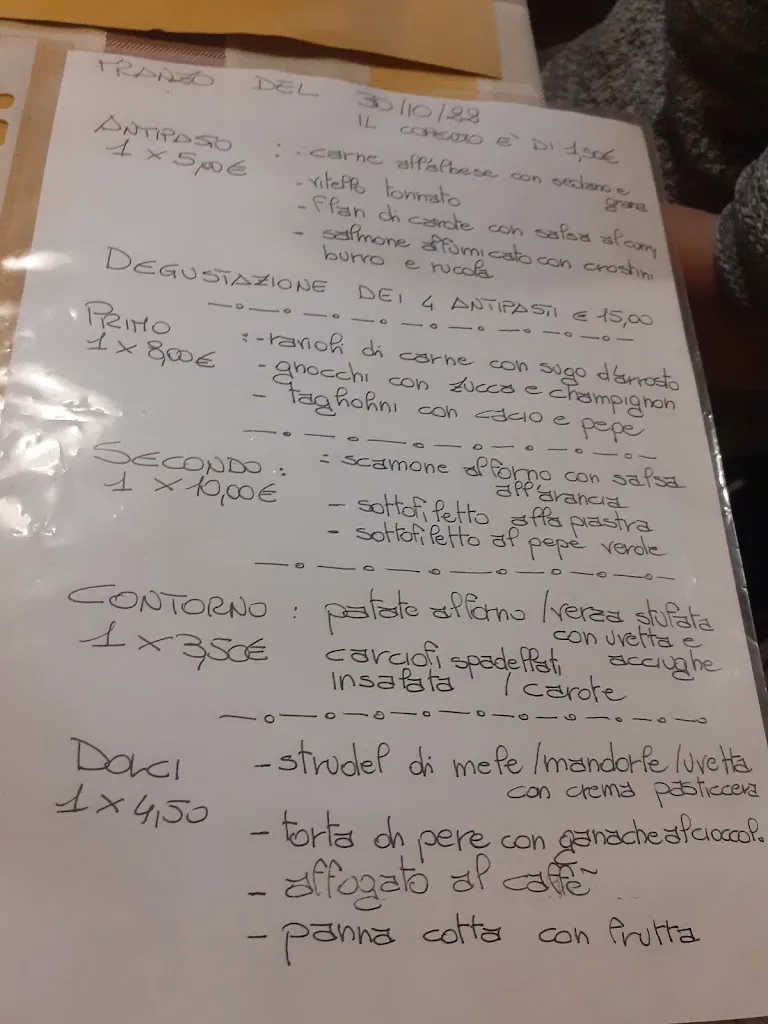 PRANZO DEL 30/10/22
IL COPERTO E' DI 1,50€
ANTIPASTO : - carne all'albese con sedano e
1 x 5,00€ grana
- vitello tonnato
- flan di carote con salsa al
- salmone affumicato con crostini
burro e rucola
DEGUSTAZIONE DEI 4 ANTIPASTI € 15,00
PRIMO : - ravioli di carne con sugo d'arrosto
1 x 8,00€ - gnocchi con zucca e champignon
- tagliolini con cacio e pepe
SECONDO : - scamone al forno con salsa
1 x 10,00€ all'arancia
- sottofiletto alla piastra
- sottofiletto al pepe verde
CONTORNO : patate al forno / verza stufata
1 x 3,50€ con uvetta e
carciofi spadellati acciughe
insalata / carote
DOLCI - strudel di mele / mandorle / uvetta
1 x 4,50 con crema pasticcera
- torta di pere con ganache al cioccol.
- affogato al caffè
- panna cotta con frutta